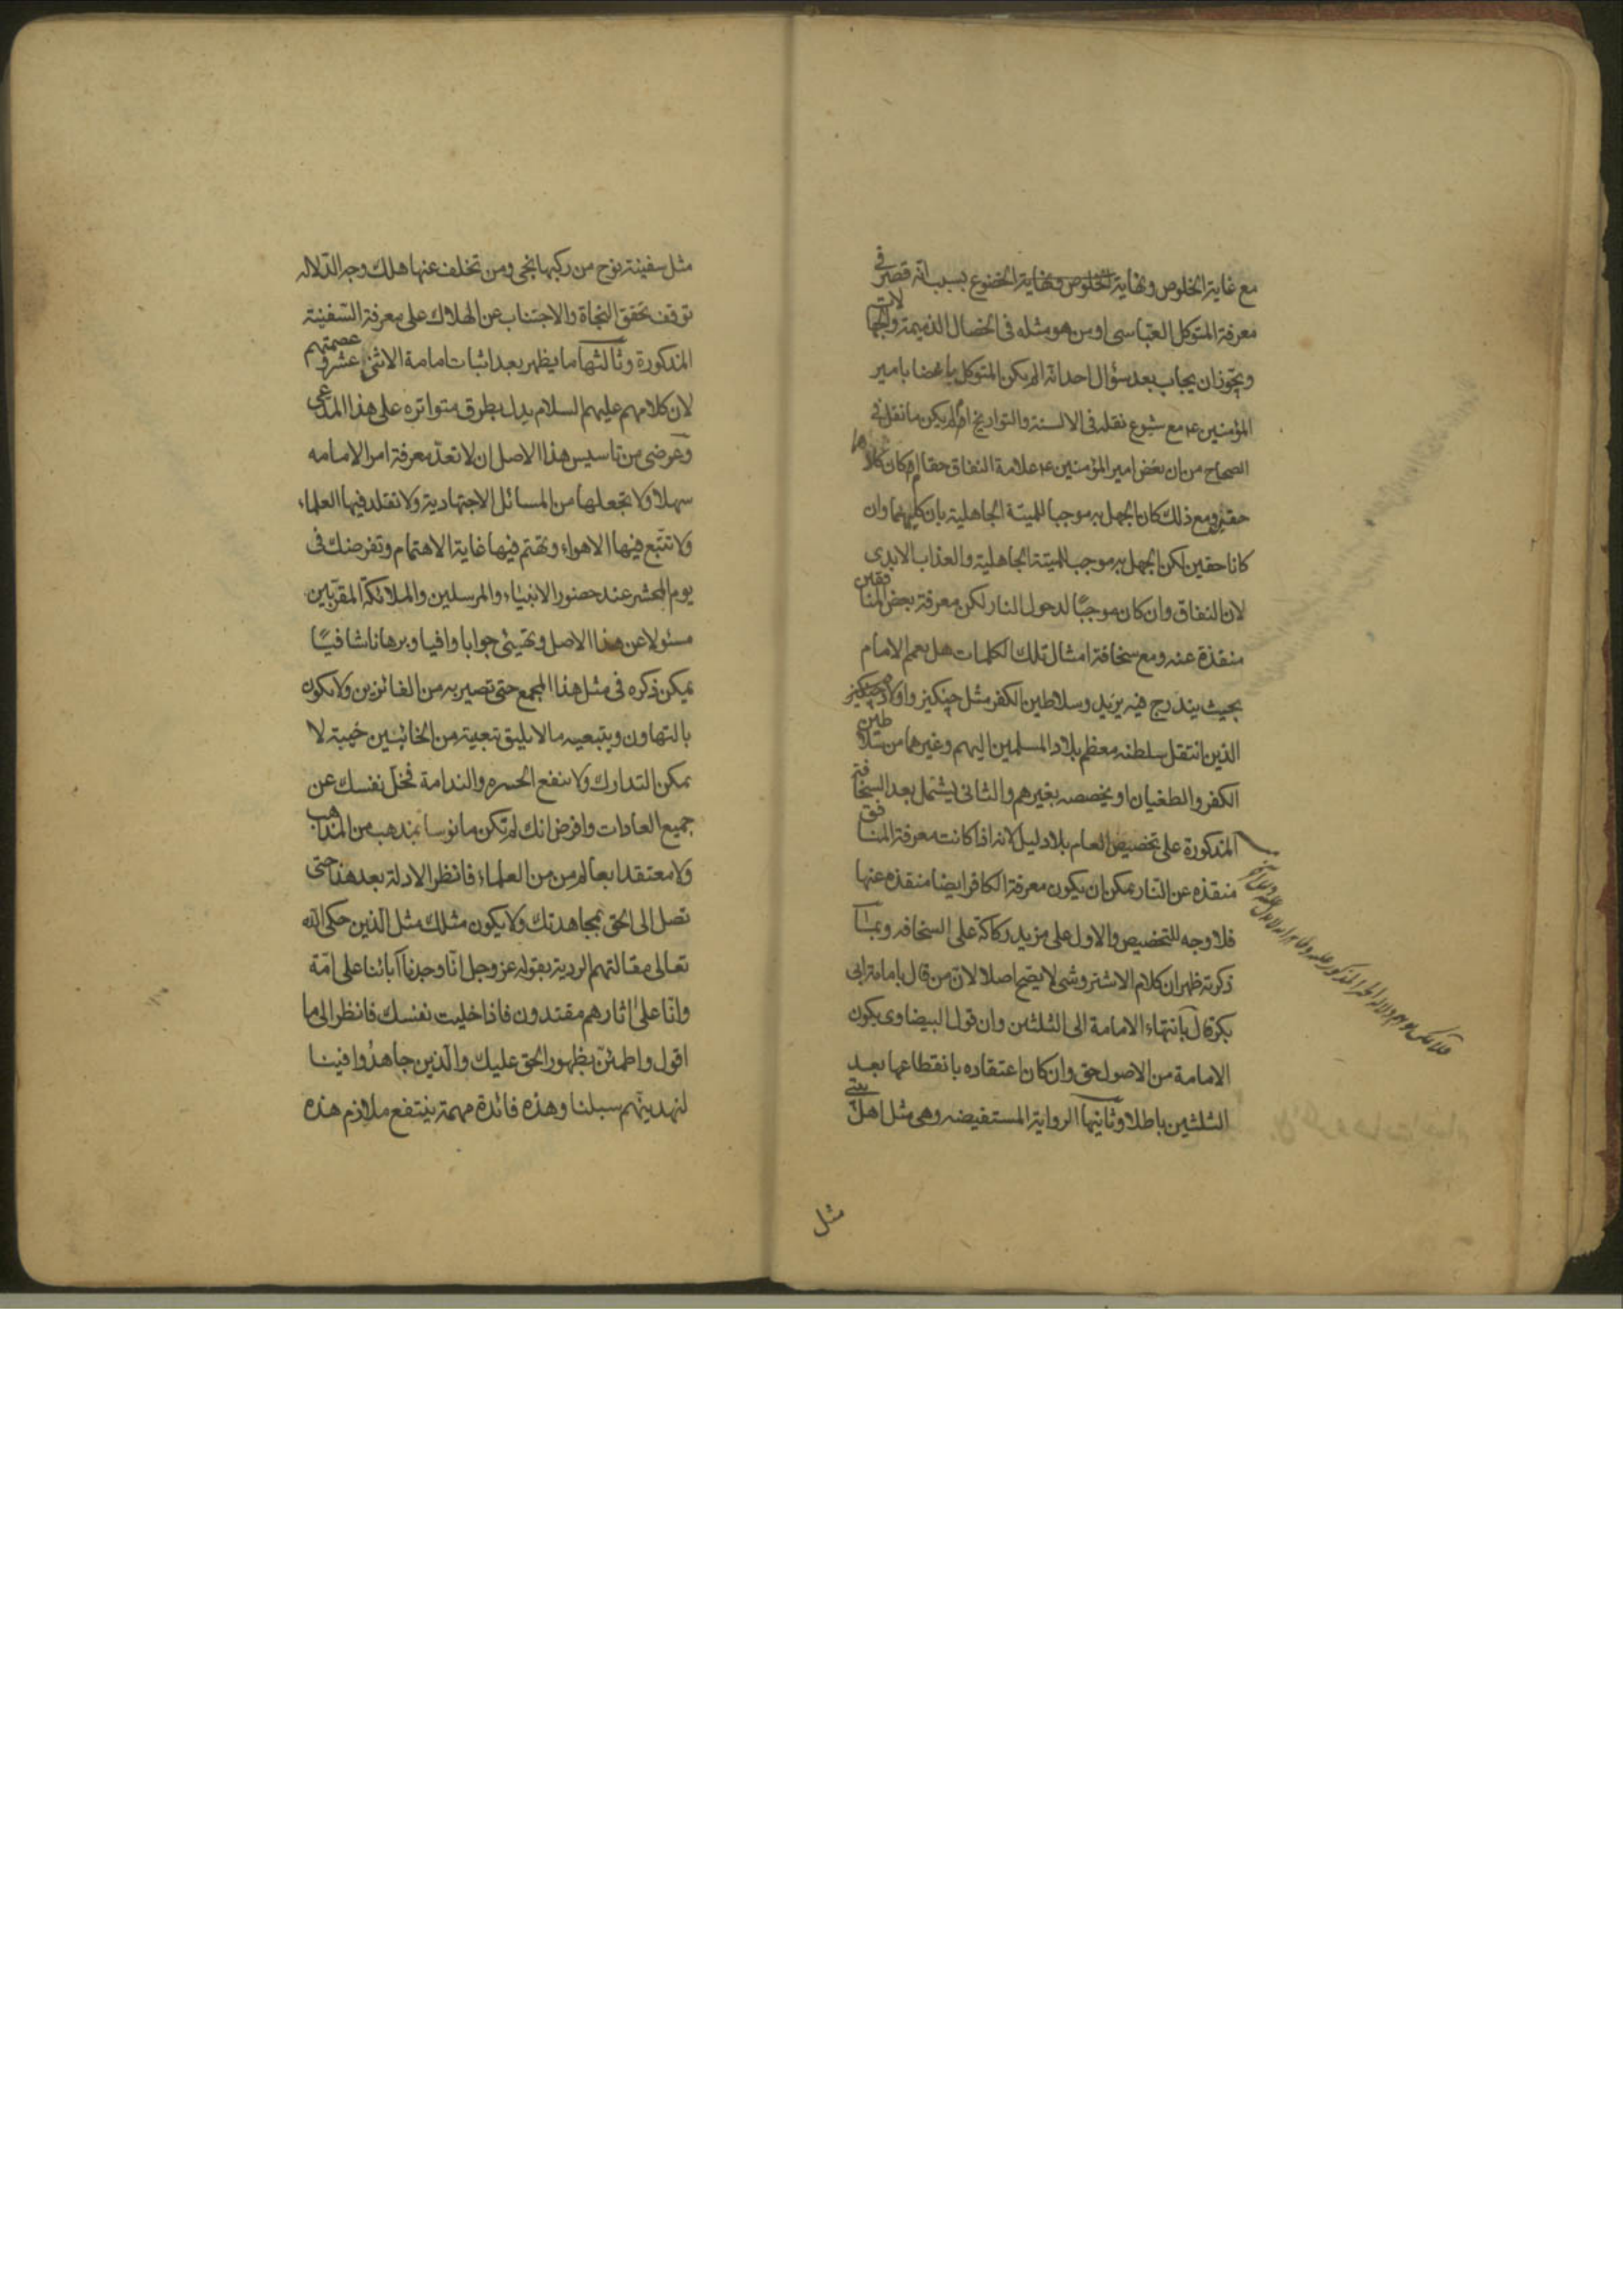 مع غاية الخلوص ونهاية الخلوص ونهاية الخضوع بسبب انه قصر في
معرفة المتوكل العباسي او من هو مثله في الخصال الذميمة والجهالات
ويجوز ان يجاب بعد سؤال احد انه الم يكن المتوكل باغضا بامير
المؤمنين ع مع شيوع نقله في الالسنة والتواريخ او الم يكن ما نقل في
الصحاح من ان بغض امير المؤمنين ع علامة النفاق حقا ام كان كلاهما
حقين ومع ذلك كان الجهل به موجبا للميتة الجاهلية بان كليهما وان
كانا حقين لكن الجهل به موجب للميتة الجاهلية والعذاب الابدى
لان النفاق وان كان موجبًا لدخول النار لكن معرفة بعض المنافقين
منقذة عنه ومع سخافة امثال تلك الكلمات هل يعم الامام
بحيث يندرج فيه يزيد وسلاطين الكفر مثل چنكيز واولاد چنكيز
الذين انتقل سلطنه معظم بلاد المسلمين اليهم وغيرهما من سلاطين
الكفر والطغيان او يخصصه بغيرهم والثاني يشتمل بعد السخافة
المذكورة على تخصيص العام بلا دليل لانه اذا كانت معرفة المنافق
منقذه عن النار يمكن ان يكون معرفة الكافر ايضا منقذه عنها
فلا وجه للتخصيص والاول على مزيد ركاكة على السخافه وبما
ذكرته ظهر ان كلام الاشتروشي لا يصح اصلا لان من قال بامامة ابي
بكر قال بانتهاء الامامة الى الثلثين وان قول البيضاوى بكون
الامامة من الاصول حق وان كان اعتقاده بانقطاعها بعد
الثلثين باطلا وثانيها الرواية المستفيضه وهى مثل اهل بيتي
مثل
مثل سفينة نوح من ركبها نجى ومن تخلف عنها هلك وجه الدلاله
توقف تحقق النجاة والاجتناب عن الهلاك على معرفة السفينة
المذكورة وثالثها ما يظهر بعد اثبات امامة الاثني عشر وعصمتهم
لان كلامهم عليهم السلام يدل بطرق متواتره على هذا المدعى
وغرضى من تاسيس هذا الاصل ان لا تعد معرفة امر الامامه
سهلا ولا تجعلها من المسائل الاجتهادية ولا تقلد فيها العلماء
ولا تتبع فيها الاهواء وتهتم فيها غاية الاهتمام وتفرضنك فى
يوم المحشر عند حضور الانبياء والمرسلين والملائكة المقربين
مسئولا عن هذا الاصل وتهيئ جوابا وافيا وبرهانا شافيًا
يمكن ذكره فى مثل هذا المجمع حتى تصير به من الفائزين ولا يكون
بالتهاون وبتبعيه ما لا يليق تبعيته من الخائبين خيبة لا
يمكن التدارك ولا ينفع الحسره والندامة فخل نفسك عن
جميع العادات وافرض انك لم تكن مانوسا بمذهب من المذاهب
ولا معتقدا بعالم من من العلماء فانظر الادلة بعد هذا حتى
تصل الى الحق بمجاهدتك ولا يكون مثلك مثل الذين حكى الله
تعالى مقالتهم الردية بقوله عز وجل انا وجدنا آبائنا على امّة
وانا على اثارهم مقتدون فاذا خليت نفسك فانظر الى ما
اقول واطمئن بظهور الحق عليك والذين جاهدُوا فينا
لنهدينّهم سبلنا وهذه فائدة مهمة ينتفع ملازم هذه